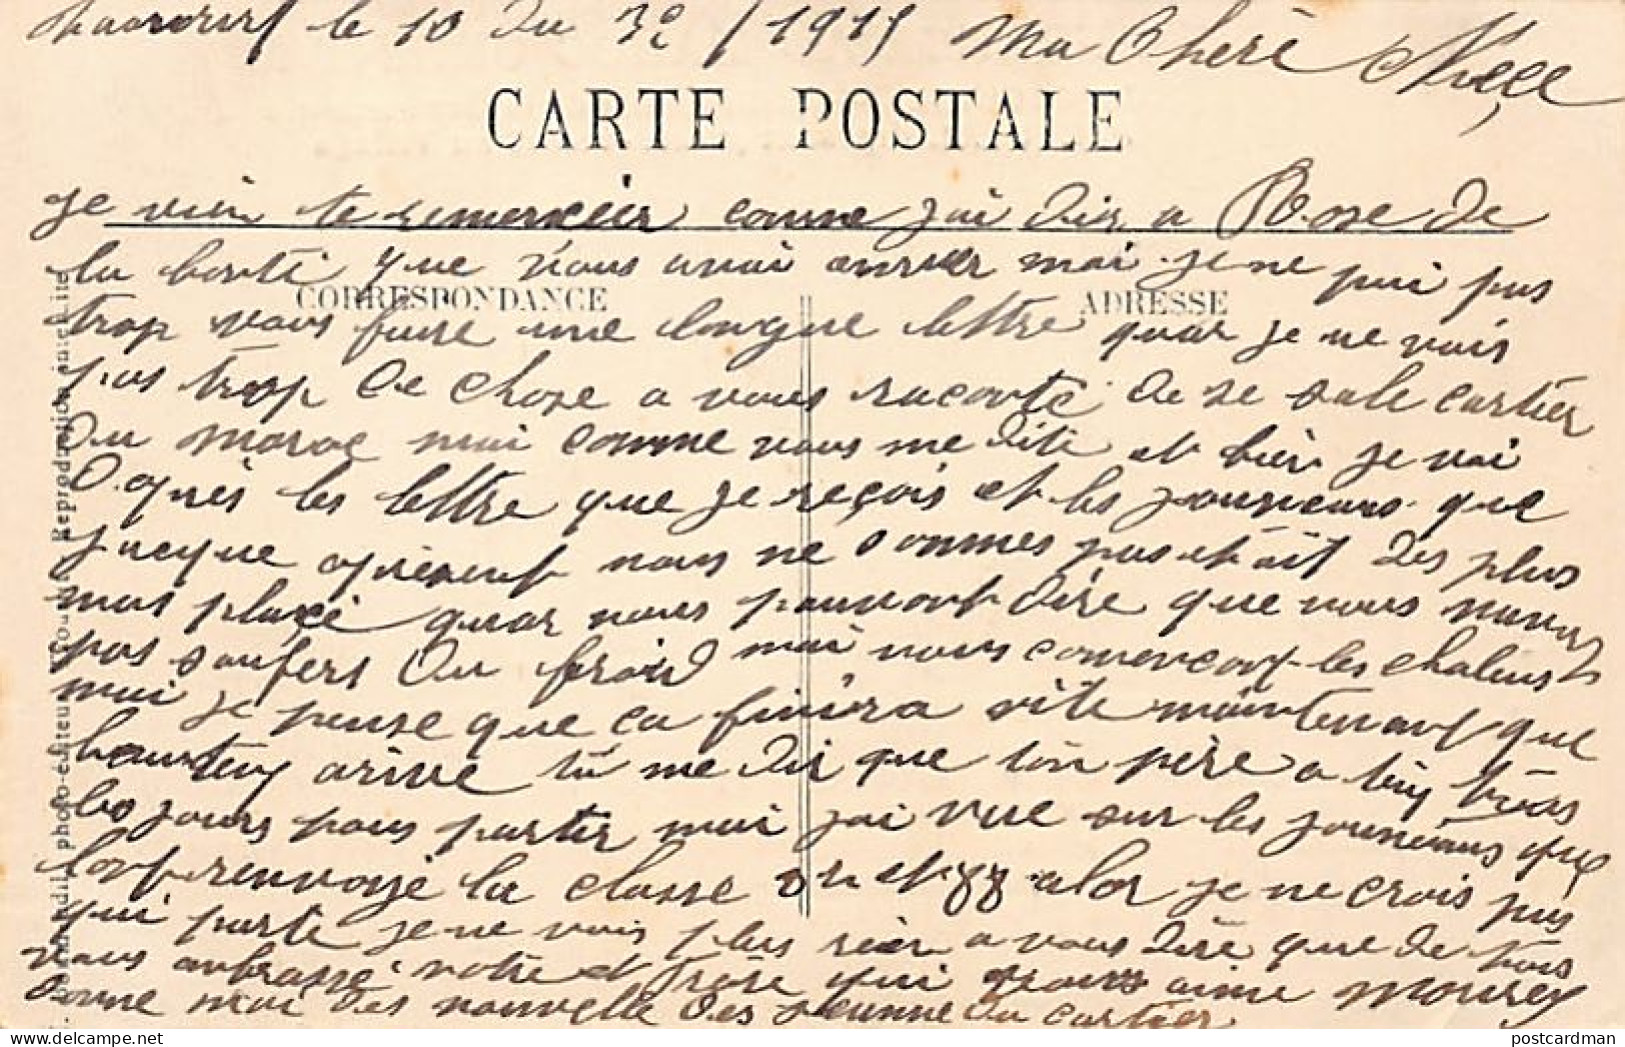 le 10 du 3e / 1915 Ma Cheré Niece
CARTE POSTALE
je vien te remercier comme jai dir a Rose de
la bonté que vous avai mai je ne pui pas
CORRESPONDANCE
ADRESSE
trop vous faire une longue lettre quar je ne vois
pas trop de chose a vous raconté de se sale cartier
du maroc mai comme vous me dite et bien je voi
daprès les lettre que je reçois et les journeaux que
jacque nous ne sommes pas etait des plus
mal placé quar nous pouvont dire que nous navons
pas soufers du froid mai nous comencont les chaleurs
mai je pense que ca finira vite maintenant que
tu me dir que ton père a
les jours pour partir mai jai vue sur les journeaux que
lon renvoyé la classe et 88 alor je ne crois pas
qui parte je ne vois plus rien a vous dire que de
vous anbrassé votre frère qui vous aime
donne moi des nouvelle des jeunne du cartier
photo-éditeur Reproduction interdite
postcardman